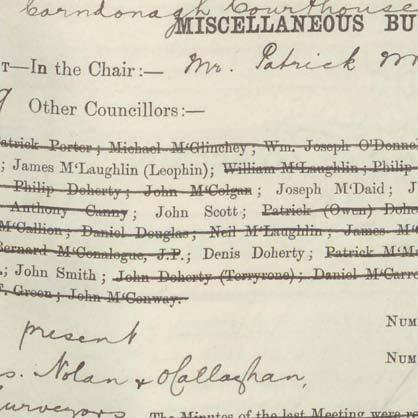 Carndonagh Courthouse
MISCELLANEOUS BU
T—In the Chair:— Mr. Patrick
Other Councillors:—
atrick Porter; Michael M'Glinchey; Wm. Joseph O'Donne
; James M'Laughlin (Leophin); William M'Laughlin; Philip
Philip Doherty; John M'Colgan; Joseph M'Daid; J
Anthony Canny; John Scott; Patrick (Owen) Dohe
M'Callion; Daniel Douglas; Neil M'Laughlin; James M'C
Bernard M'Conalogue, J.P.; Denis Doherty; Patrick M'M
.; John Smith; John Doherty (Terryrone); Daniel M'Carro
T. Green; John M'Conway.
present
NUM
NUM
s. Nolan & O'Callaghan,
Surveyors The Minutes of the last Meeting were re